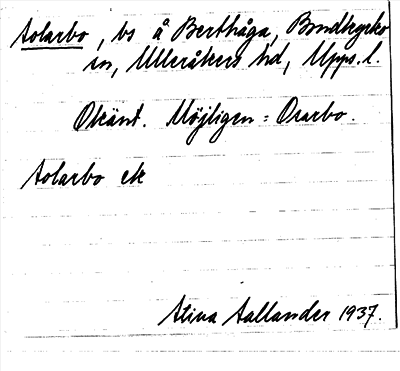 Solarbo, bs å Berthåga, Bondkyrko
sn, Ulleråkers hd, Upps. l.
Okänt. Möjligen = Orarbo.
Solarbo ek
Stina Sallander 1937.